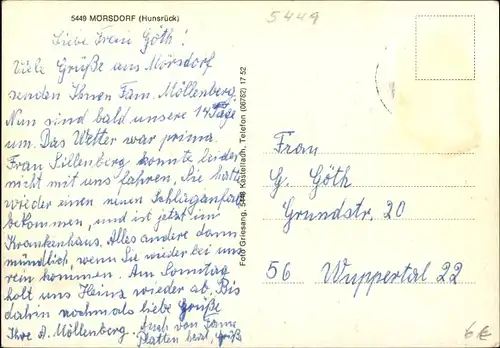 5449 MÖRSDORF (Hunsrück)
5449
Liebe Frau Göth!
Viele Grüße aus Mörsdorf
senden Ihnen Fam. Möllenberg.
Nun sind bald unsere 14 Tage
um. Das Wetter war prima.
Frau Sillenberg konnte leider
nicht mit uns fahren. Sie hatte
wieder einen neuen Schlaganfall
bekommen, und ist jetzt im
Krankenhaus. Alles andere dann
mündlich, wenn Sie wieder bei uns
rein kommen. Am Sonntag
holt uns Heinz wieder ab. Bis
dahin nochmals liebe Grüße
Ihre A. Möllenberg. Auch von Fam.
Platten herzl. Grüße
Foto Griesang, 5448 Kastellaun, Telefon (06762) 17 52
Frau
G. Göth
Grundstr. 20
56 Wuppertal 22
6€